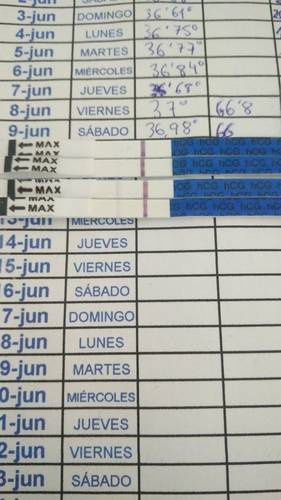 3-jun DOMINGO 36'61°
4-jun LUNES 36'75°
5-jun MARTES 36'77°
6-jun MIÉRCOLES 36'84°
7-jun JUEVES 36'68°
8-jun VIERNES 37° 66'8
9-jun SÁBADO 36,98° 66
MAX hCG hCG hCG hCG
MAX hCG hCG hCG
MAX hCG hCG hCG
MAX hCG hCG hCG
MIÉRCOLES
14-jun JUEVES
5-jun VIERNES
6-jun SÁBADO
7-jun DOMINGO
8-jun LUNES
9-jun MARTES
0-jun MIÉRCOLES
1-jun JUEVES
2-jun VIERNES
3-jun SÁBADO